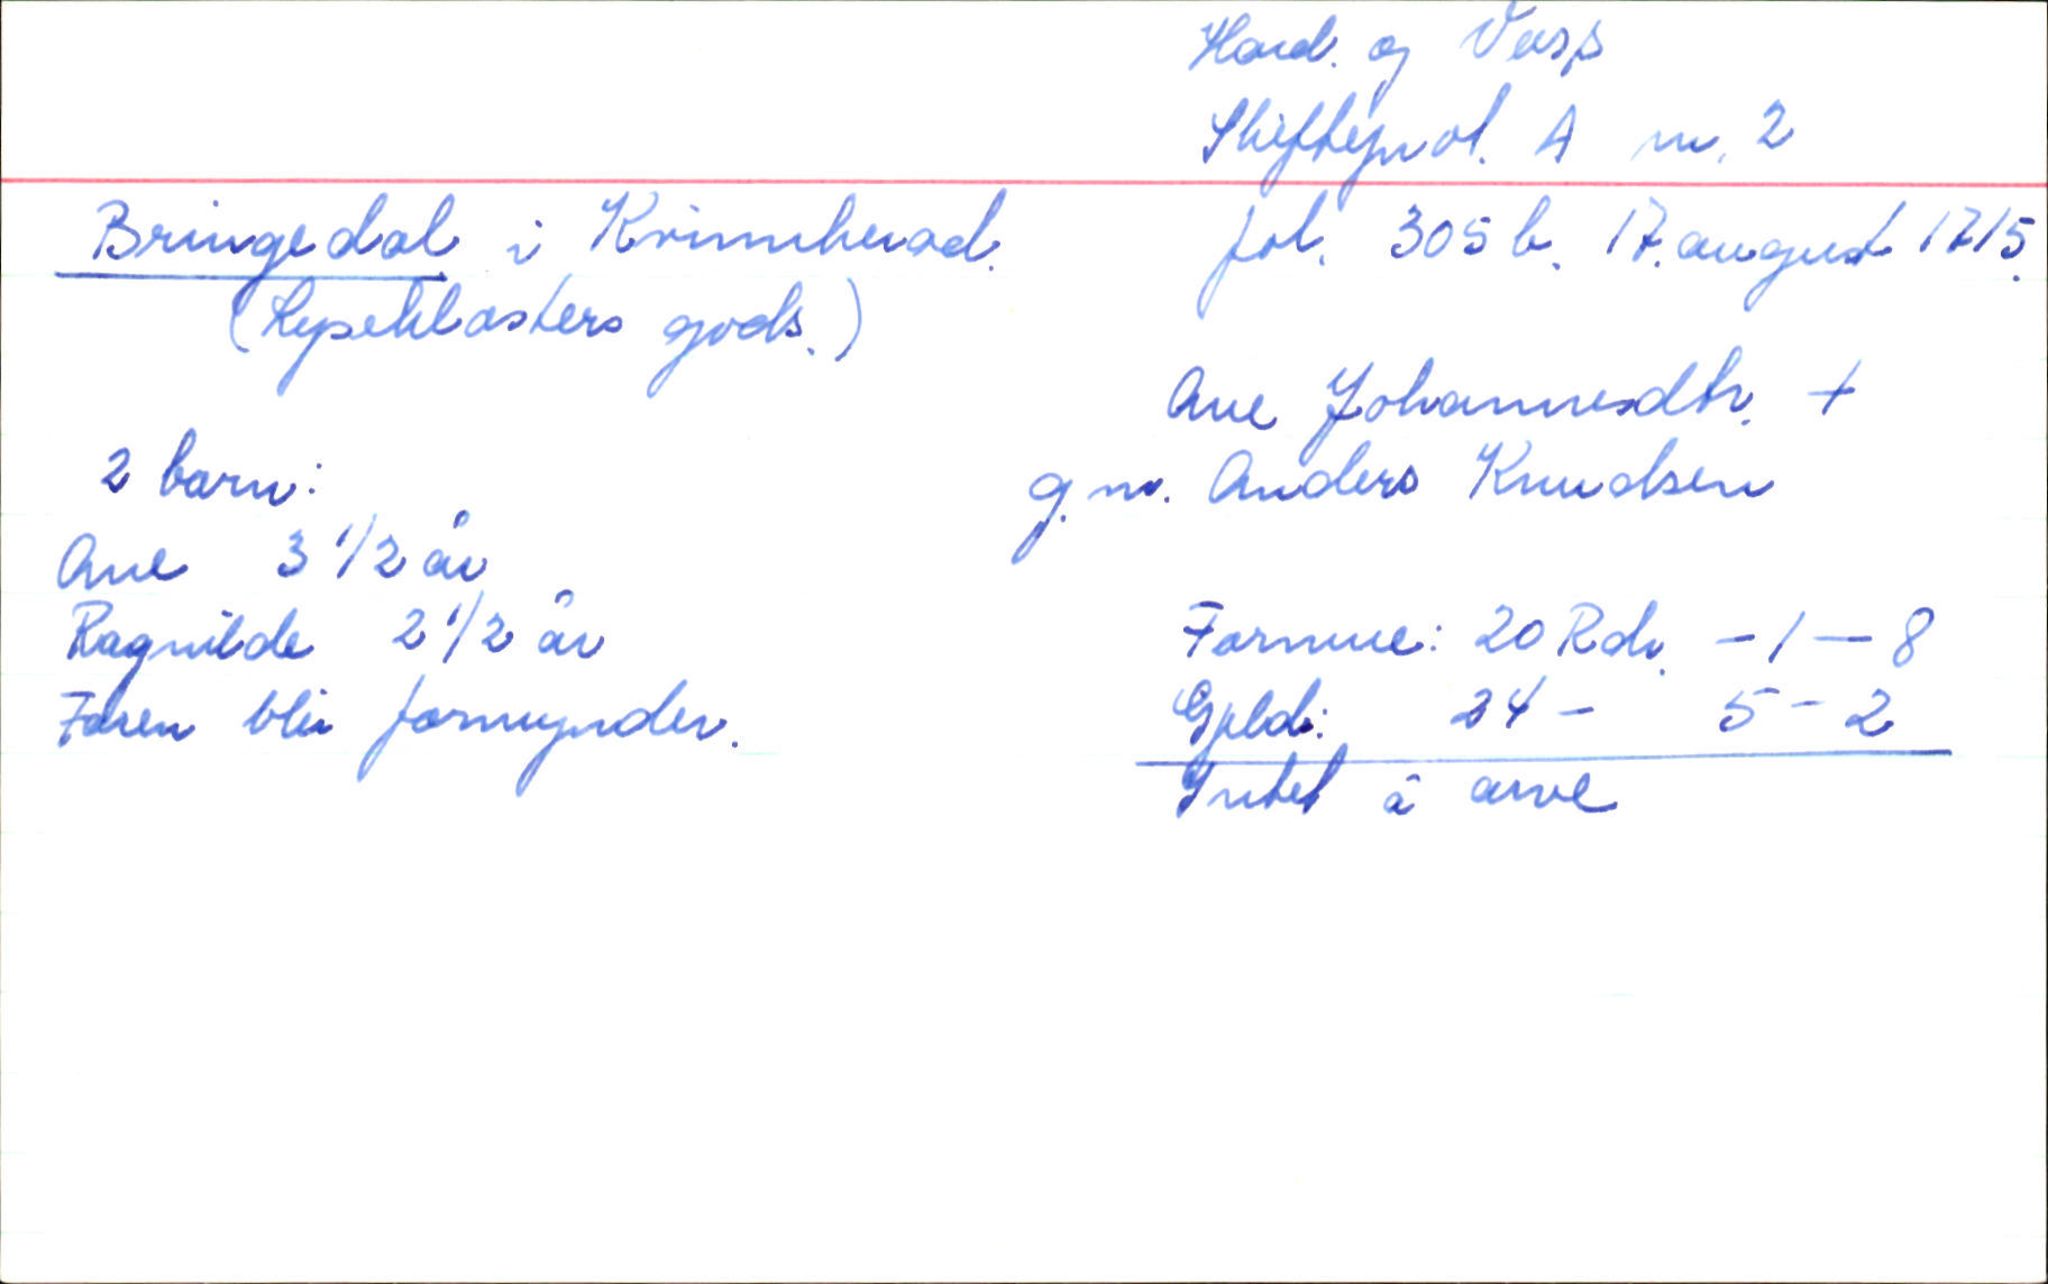 Hard. og Voss
Skifteprot. A nr. 2
Bringedal i Kvinnherad.
fol. 305 b. 17. august 1715.
(Lyseklosters gods.)
Ane Johannesdtr. +
g.m. Anders Knudsen
2 barn:
Ane 3 1/2 år
Ragnilde 2 1/2 år
Faren blir formynder.
Formue: 20 Rdr. - 1 - 8
Gjeld: 24 - 5 - 2
Intet å arve